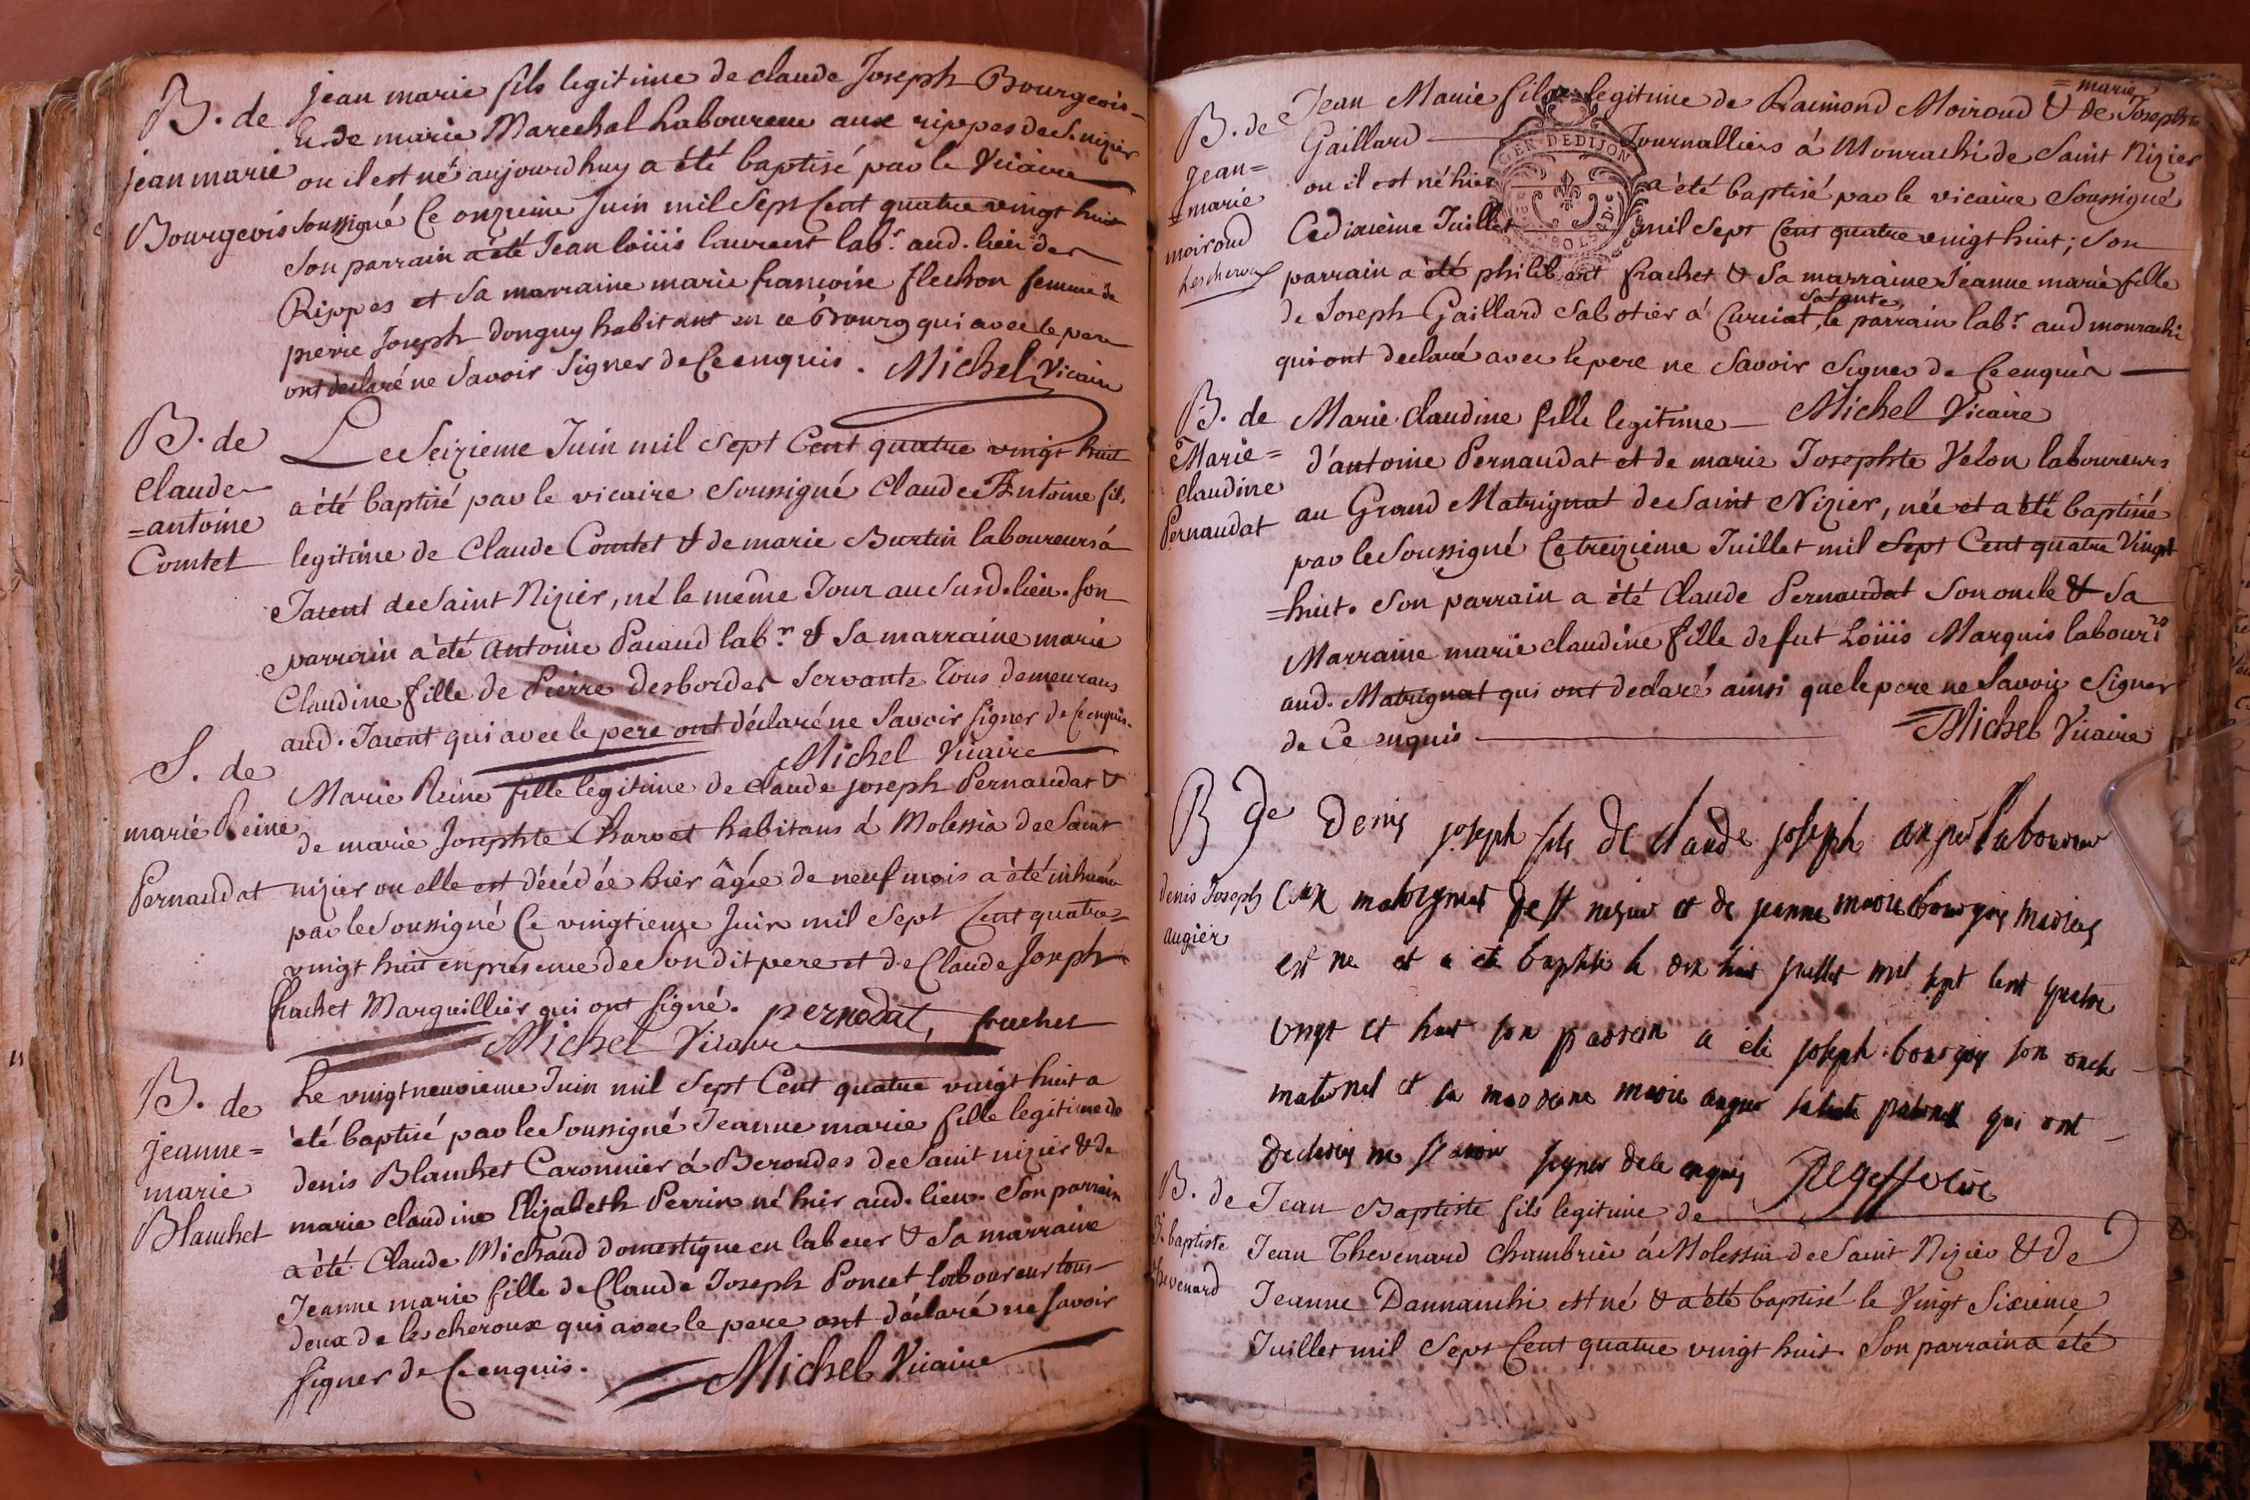 B. de
jean marie
Bourgeois
jean marie fils legitime de claude Joseph Bourgeois
& de marie Marechal Laboureur aux rippes de S. nizier
ou il est né aujourdhuy a été baptisé par le Vicaire
soussigné Ce onzieme juin mil Sept Cent quatre vingt huit
son parrain a été Jean loüis laurent lab.r aud. lieu des
Rippes et sa marraine marie francoise flechon femme de
pierre Joseph donguy habitant en ce Bourg qui avec le pere
ont declaré ne Savoir Signer de Ce enquis. Michel Vicaire
B. de
Claude
=antoine
Comtet
Le Seizieme Juin mil Sept Cent quatre vingt huit
a été baptisé par le vicaire Soussigné Claude Antoine fils
legitime de Claude Comtet & de marie Burtin laboureurs á
Tarent de Saint Nizier, né le même Jour au Susd. lieu. Son
parrain a été Antoine Pacaud lab.r & Sa marraine marie
Claudine fille de Pierre desbordes Servante Tous demeurans
aud. Tarent qui avec le pere ont déclaré ne Savoir signer de Ce enquis.
Michel Vicaire
S. de
marie Reine
Pernaudat
Marie Reine fille legitime de Claude joseph Pernaudat &
de marie Josephte Charvet habitans á Molessia de Saint
nizier ou elle est décédée hier âgée de neuf mois a été inhumée
par le Soussigné Ce vingtieme Juin mil Sept Cent quatre
vingt huit en presence de Son dit pere et de Claude Joseph
frachet Marguillier qui ont signé. pernodat, frachet
Michel Vicaire
B. de
jeanne=
marie
Blanchet
Le vingt neuvieme Juin mil Sept Cent quatre vingt huit a
été baptisé par le Soussigné Jeanne marie fille legitime de
denis Blanchet Caronnier á Beroudes de Saint nizier & de
marie claudine Elizabeth Perrin né hier aud. lieu. Son parrain
a été Claude Michaud domestique en labeur & Sa marraine
Jeanne marie fille de Claude Joseph Poncet laboureur tous
deux de lescheroux qui avec le pere ont déclaré ne Savoir
signer de Ce enquis. Michel Vicaire
B. de
Jean=
=marie
moiroud
Lescheroux
=marie
Jean Marie fils legitime de Raimond Moiroud & de Joseph te
Gaillard Journalliers á Monrachi de Saint Nizier
ou il est né hier a été baptisé par le vicaire Soussigné
Ce dixieme Juillet mil Sept Cent quatre vingt huit; Son
parrain a été philibert frachet & Sa marraine Jeanne marie fille
sa tante,
de Joseph Gaillard Sabotier á Curciat, le parrain lab.r aud monrachi
qui ont declaré avec le pere ne Savoir Signer de Ce enquis
Michel Vicaire
B. de
Marie=
Claudine
Pernaudat
Marie Claudine fille legitime
d'antoine Pernaudat et de marie Josephte Velon laboureurs
au Grand Matrignat de Saint Nizier, née et a été baptisée
par le Soussigné Ce treizieme Juillet mil Sept Cent quatre Vingt
=huit. Son parrain a été Claude Pernaudat Son oncle & Sa
Marraine marie claudine fille de fut Loüis Marquis labour.rs
aud. Matrignat qui ont declaré ainsi que le pere ne Savoir Signer
de Ce enquis Michel Vicaire
B de
denis Joseph
augier
Denis joseph fils de claude joseph laboureur
de st nizier et de jeanne marie bourgois maries
est ne et a ete baptise le dix huit juillet mil sept cent quatre
vingt et huit son parrain a ete joseph bourgois son oncle
maternel et sa marraine marie augier sa tante paternelle qui ont
declares ne scavoir signer de ce enquis
B. de
J. baptiste
thevenard
Jean Baptiste fils legitime de
Jean Thevenard chambrier á Molessia de Saint Nizier & de
Jeanne Dannanchi est né & a été baptisé le Vingt Sixieme
Juillet mil Sept Cent quatre vingt huit. Son parrain a été
DEDIJON